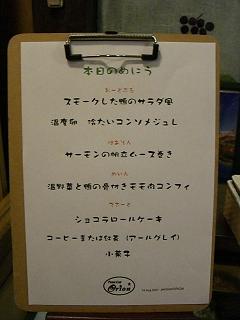 本日のめにう
おーどぶる
スモークした鴨のサラダ風
温度卵 冷たいコンソメジュレ
ぽあそん
サーモンの帆立ムース巻き
めいん
温野菜と鴨の骨付きモモ肉コンフィ
でざーと
ショコラロールケーキ
コーヒーまたは紅茶（アールグレイ）
小菓子
Orion